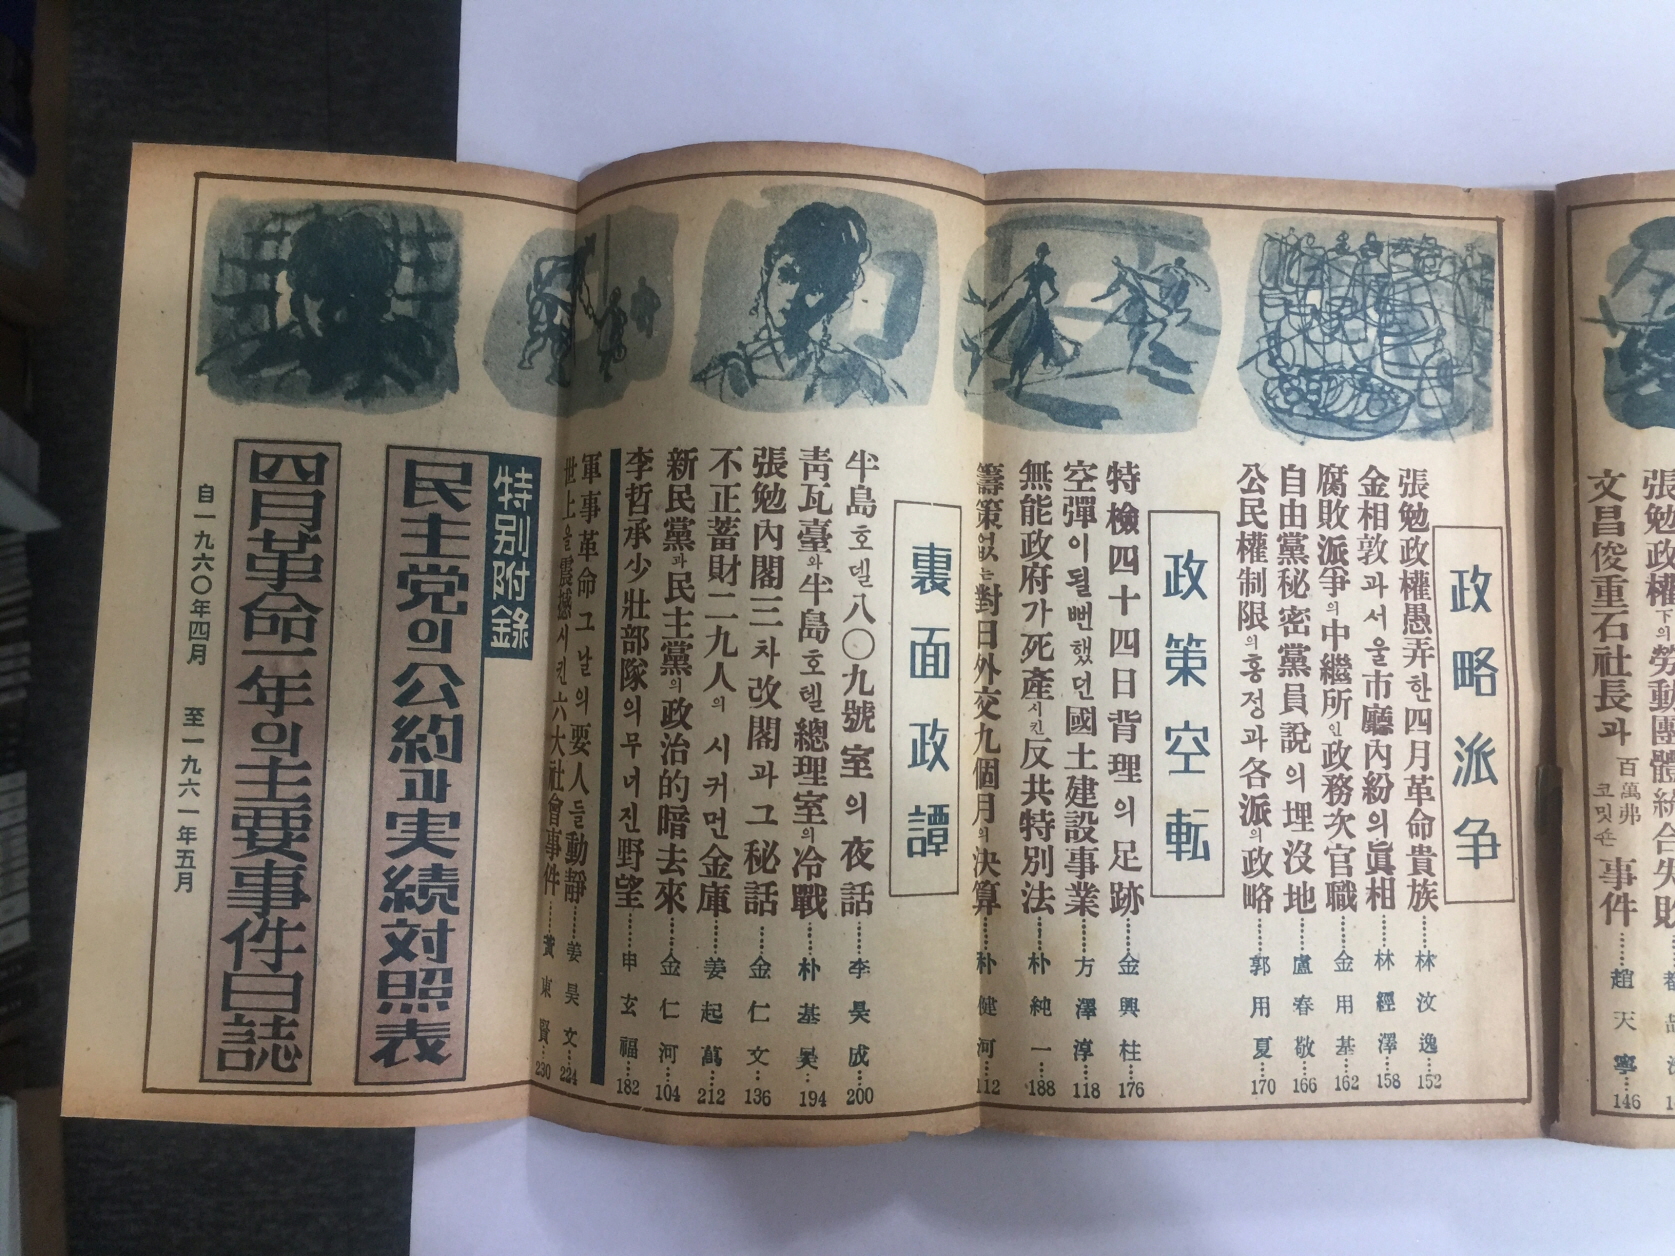 張勉政權下의勞動團體統合失敗
文昌俊重石社長과百萬弗코밋숀事件……趙天寧…146
政略派争
張勉政權愚弄한四月革命貴族……林汶逸…152
金相敦과서울市廳內紛의眞相……林經澤…158
腐敗派爭의中繼所인政務次官職……金用基…162
自由黨秘密黨員說의埋沒地……盧春敬…166
公民權制限의흥정과各派의政略……郭用夏…170
政策空転
特檢四十四日背理의足跡……金興桂…176
空彈이될뻔했던國土建設事業……方澤淳…118
無能政府가死産시킨反共特別法……朴純一…188
籌策없는對日外交九個月의決算……朴健河…112
裏面政譚
半島호델八〇九號室의夜話……李昊成…200
靑瓦臺와半島호텔總理室의冷戰……朴基昊…194
張勉內閣三차改閣과그秘話……金仁文…136
不正蓄財二九人의시커먼金庫……姜起萬…212
新民黨과民主黨의政治的暗去來……金仁河…104
李哲承少壯部隊의무너진野望……申玄福…182
軍事革命그날의要人들動靜……姜昊文…224
世上을震撼시킨六大社會事件……黃東賢…230
特别附錄
民主党의公約과実績対照表
四月革命一年의主要事件日誌
自一九六〇年四月 至一九六一年五月